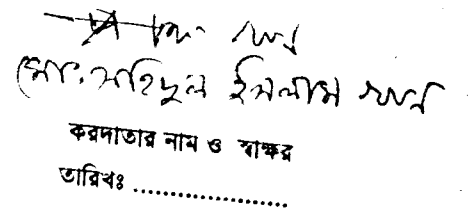 মোঃ সহিদুল ইসলাম খান
করদাতার নাম ও স্বাক্ষর
তারিখঃ ....................